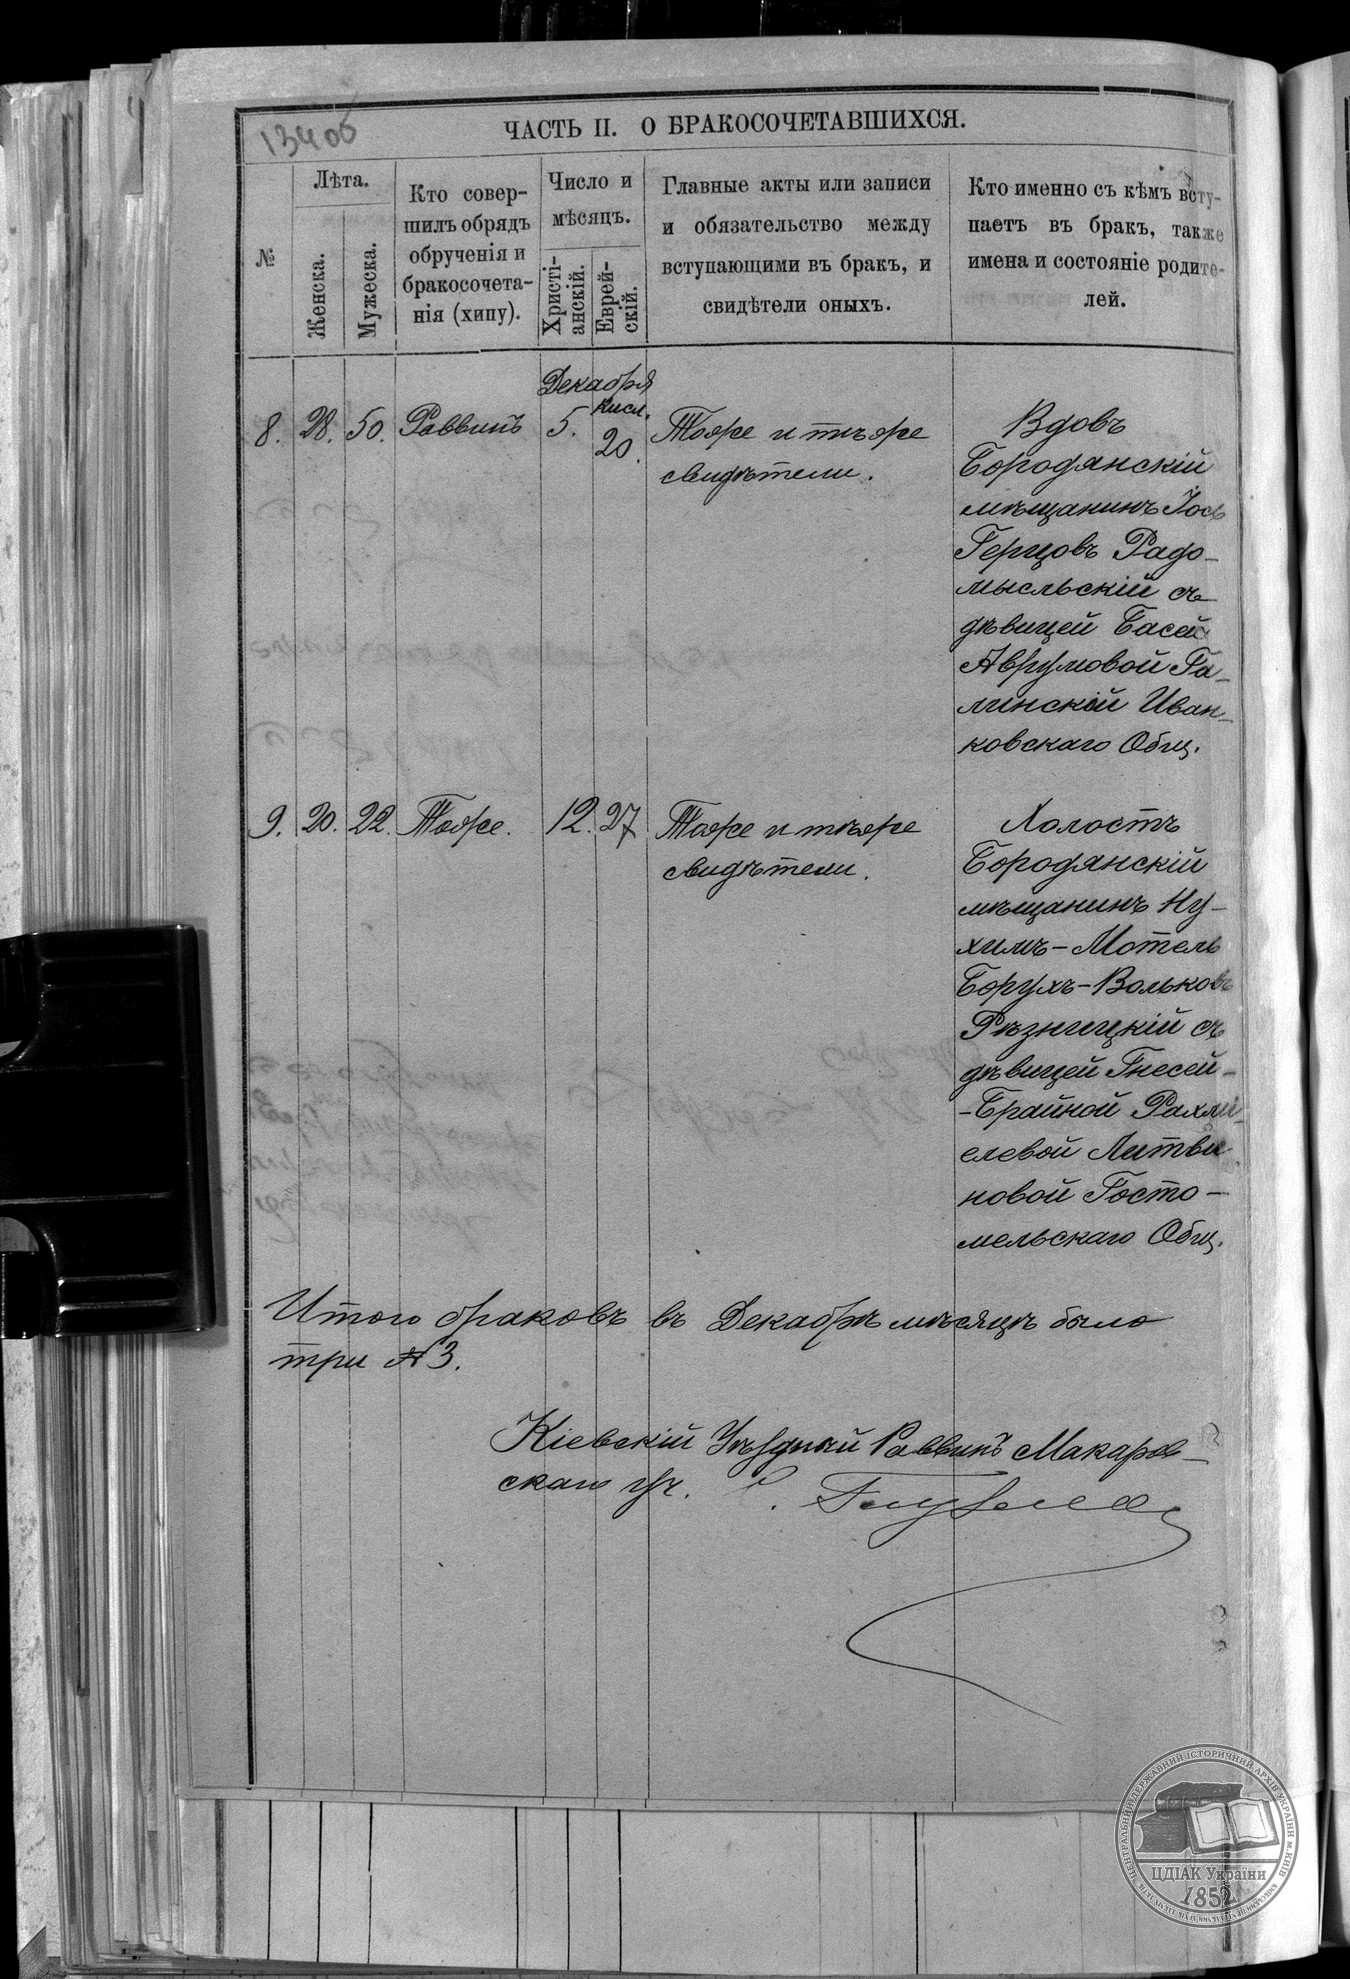 1340б
ЧАСТЬ II. О БРАКОСОЧЕТАВШИХСЯ.
№
Лѣта.
Женска.
Мужеска.
Кто совер-
шилъ обрядъ
обрученія и
бракосочета-
нія (хипу).
Число и
мѣсяцъ.
Христі-
анскій.
Еврей-
скій.
Главные акты или записи
и обязательство между
вступающими въ бракъ, и
свидѣтели оныхъ.
Кто именно съ кѣмъ всту-
паетъ въ бракъ, также
имена и состояніе родите-
лей.
Декабря
Кисл.
8. 28. 50. Раввинъ 5. 20.
Тоже и тѣже
свидѣтели.
Вдовъ
Бородянскій
мѣщанинъ Іось
Герцовъ Радо-
мысльскій съ
дѣвицей Басей
Аврумовой Га-
линской Иван-
ковскаго Общ.
9. 20. 22. Тоже. 12. 27
Тоже и тѣже
свидѣтели.
Холостъ
Бородянскій
мѣщанинъ Ну-
химъ-Мотель
Борухъ-Вольковъ
Рѣзницкій съ
дѣвицей Гнесей-
-Брайной Рахми-
елевой Литви
новой Госто-
мельскаго Общ.
Итого браковъ въ Декабрѣ мѣсяцѣ было
три № 3.
Кіевскій Уѣздный Раввинъ Макаров-
скаго уч.
ЦЕНТРАЛЬНИЙ ДЕРЖАВНИЙ ІСТОРИЧНИЙ АРХІВ УКРАЇНИ м.КИЇВ
ЦДІАК України
1852